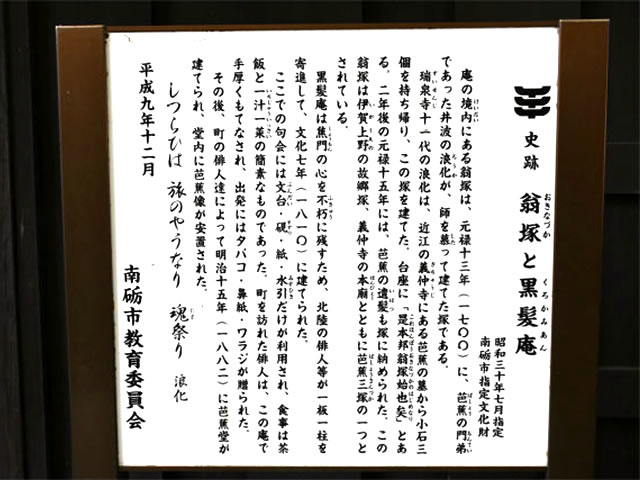 史跡 翁塚と黒髪庵
おきなづか くろかみあん
昭和三十年七月指定
南砺市指定文化財
庵の境内にある翁塚は、元禄十三年（一七〇〇）に、芭蕉の門弟
であった井波の浪化が、師を慕って建てた塚である。
瑞泉寺十一代の浪化は、近江の義仲寺にある芭蕉の墓から小石三
個を持ち帰り、この塚を建てた。台座に「是本邦翁塚始也矣」とあ
る。二年後の元禄十五年には、芭蕉の遺髪も塚に納められた。この
翁塚は伊賀上野の故郷塚、義仲寺の本廟とともに芭蕉三塚の一つと
されている。
黒髪庵は蕉門の心を不朽に残すため、北陸の俳人等が一板一柱を
寄進して、文化七年（一八一〇）に建てられた。
ここでの句会には文台・硯・紙・水引だけが利用され、食事は茶
飯と一汁一菜の簡素なものであった。町を訪れた俳人は、この庵で
手厚くもてなされ、出発にはタバコ・鼻紙・ワラジが贈られた。
その後、町の俳人達によって明治十五年（一八八二）に芭蕉堂が
建てられ、堂内に芭蕉像が安置された。
しつらひは 旅のやうなり 魂祭り 浪化
平成九年十二月
南砺市教育委員会